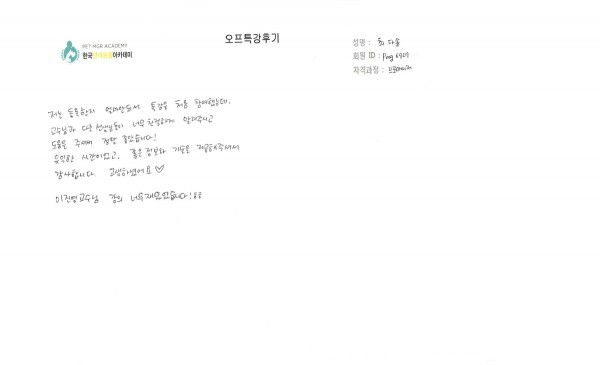 PET MGR ACADEMY
한국반려동물아카데미
오프특강후기
성명 : 최다솔
회원 ID :
자격과정 :
저는 등록한지 얼마안되서 특강을 처음 참여했는데,
교수님과 다른 선생님들이 너무 친절하게 알려주시고
도움을 주셔서 정말 좋았습니다!
유익한 시간이었고, 좋은 정보와 기술로 제공해주셔서
감사합니다. 고생하셨어요 ♡
이진영교수님 강의 너무재밌었습니다!